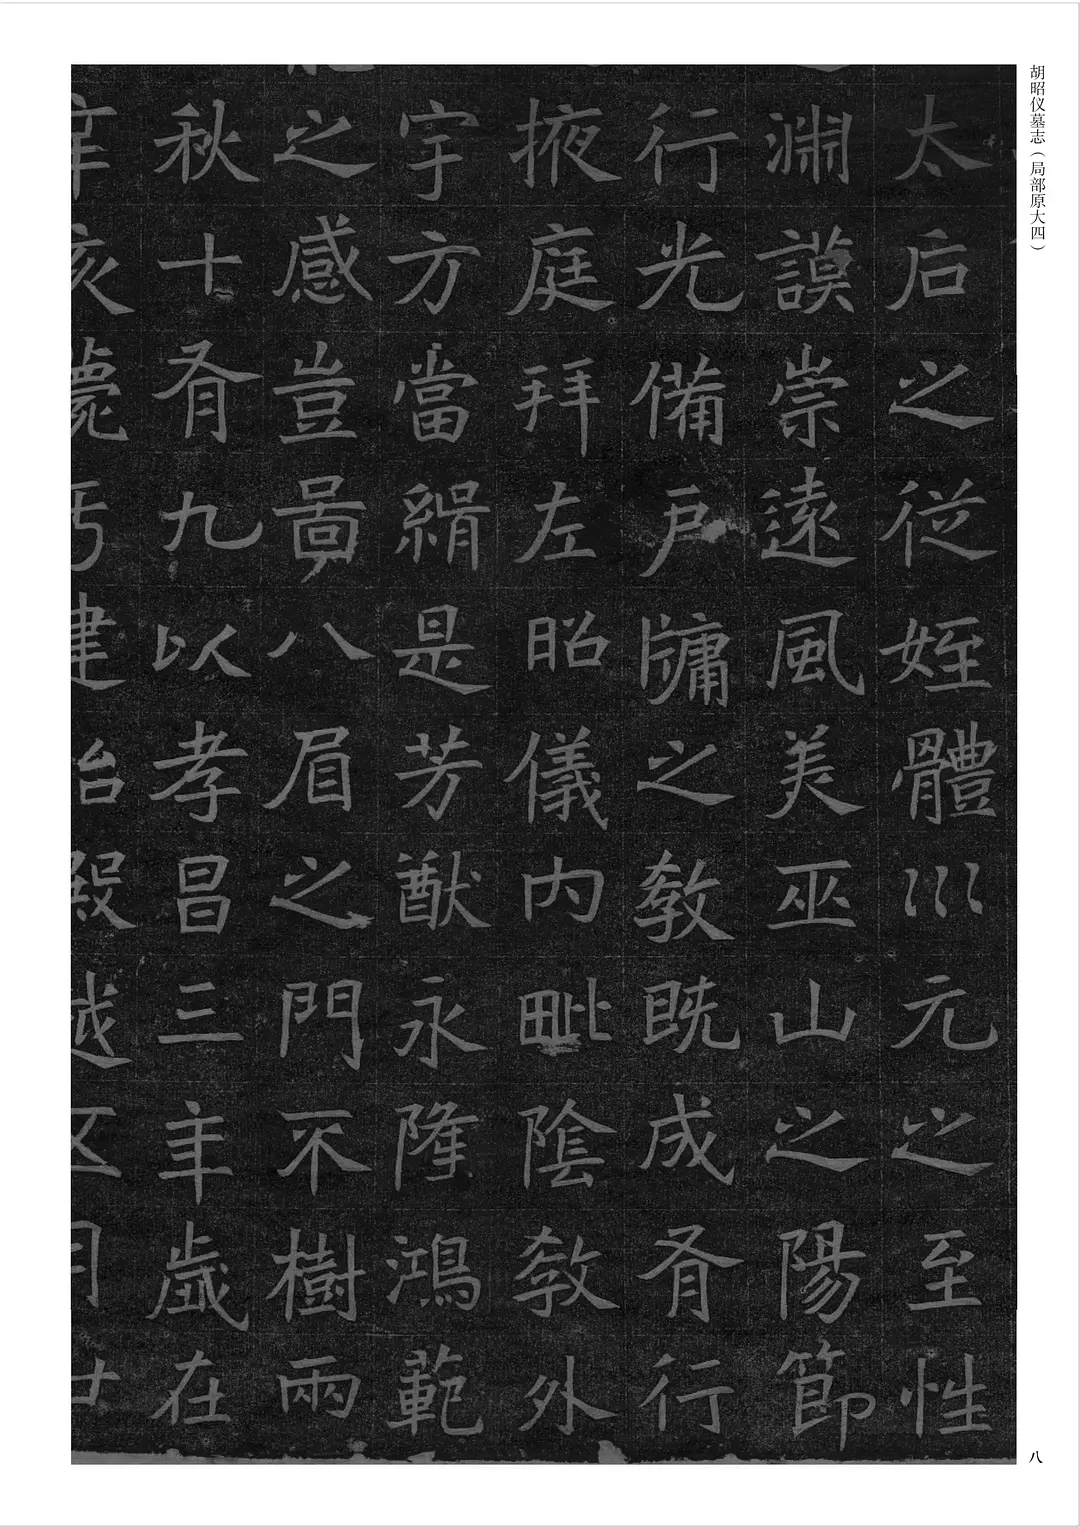 胡昭仪墓志（局部原大四）
太后之從姪體巛元之至性
淵謨崇遠風美巫山之陽節
行光備戶牗之教既成有行
掖庭拜左昭儀内毗陰教外
宇方當緝是芳猷永隆鴻範
之感豈啚八眉之門不樹兩
秋十有九以孝昌三年歲在
亥薨于建始殿越五月廿
八